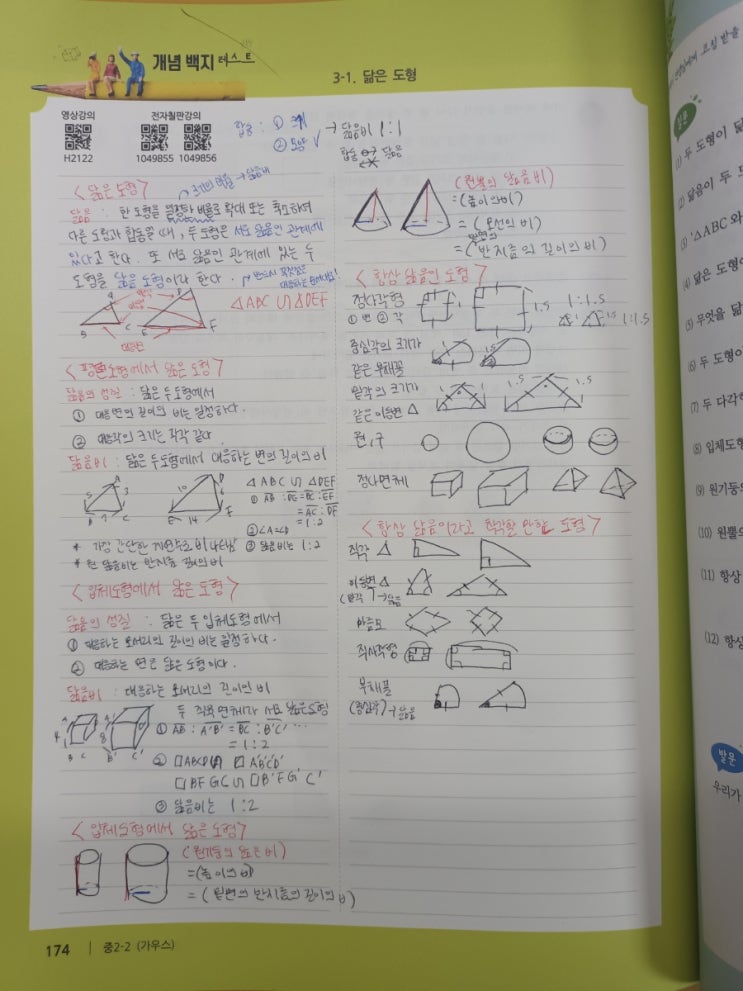 개념 백지 테스트
3-1. 닮은 도형
영상강의
전자칠판강의
H2122
1049855 1049856
합동 : ① 크기
② 모양
→ 닮음비 1:1
합동 닮음
< 닮은 도형 >
→ 닮음비
닮음 : 한 도형을 일정한 비율로 확대 또는 축소하여
다른 도형과 합동일 때, 두 도형은 서로 닮음인 관계에
있다고 한다. 또 서로 닮음인 관계에 있는 두
도형을 닮은 도형이라 한다.
△ABC ∽ △DEF
대응변
< 평면도형에서 닮은 도형 >
닮음의 성질 : 닮은 두 도형에서
① 대응변의 길이의 비는 일정하다.
② 대응각의 크기는 각각 같다.
닮음비 : 닮은 두 도형에서 대응하는 변의 길이의 비
△ABC ∽ △DEF
① AB : DE = BC : EF
= AC : DF
= 1:2
② ∠A=∠D
③ 닮음비는 1:2
* 가장 간단한 자연수로 비 나타냄
* 원 닮음비는 반지름 길이의 비
< 입체도형에서 닮은 도형 >
닮음의 성질 : 닮은 두 입체도형에서
① 대응하는 모서리의 길이의 비는 일정하다.
② 대응하는 면은 닮은 도형이다.
닮음비 : 대응하는 모서리의 길이의 비
두 직육면체가 서로 닮은도형
① AB : A'B' = BC : B'C' ...
= 1:2
② □ABCD ∽ □A'B'C'D'
□BFGC ∽ □B'F'G'C'
③ 닮음비는 1:2
< 입체도형에서 닮은 도형 >
(원기둥의 닮음비)
=(높이의 비)
= (밑면의 반지름의 길이의 비)
(원뿔의 닮음비)
=(높이의 비)
= (모선의 비)
밑면의
=(반지름의 길이의 비)
< 항상 닮음인 도형 >
정사각형
① 변 ② 각
1 1.5 1:1.5
1:1.5
중심각의 크기가
같은 부채꼴
밑각의 크기가
같은 이등변 △
1.5 1.5
원, 구
정다면체
< 항상 닮음이라고 착각할 만한 도형 >
직각 △
이등변 △
→ 닮음
마름모
직사각형
부채꼴
→ 닮음
174 | 중2-2 (가우스)
(1) 두 도형이
(2) 닮음이 두
(3) '△ABC 와
(4) 닮은 도형이
(5) 무엇을 닮
(6) 두 도형이
(7) 두 다각
(8) 입체도형
(9) 원기둥의
(10) 원뿔의
(11) 항상
(12) 항상
발문
우리가